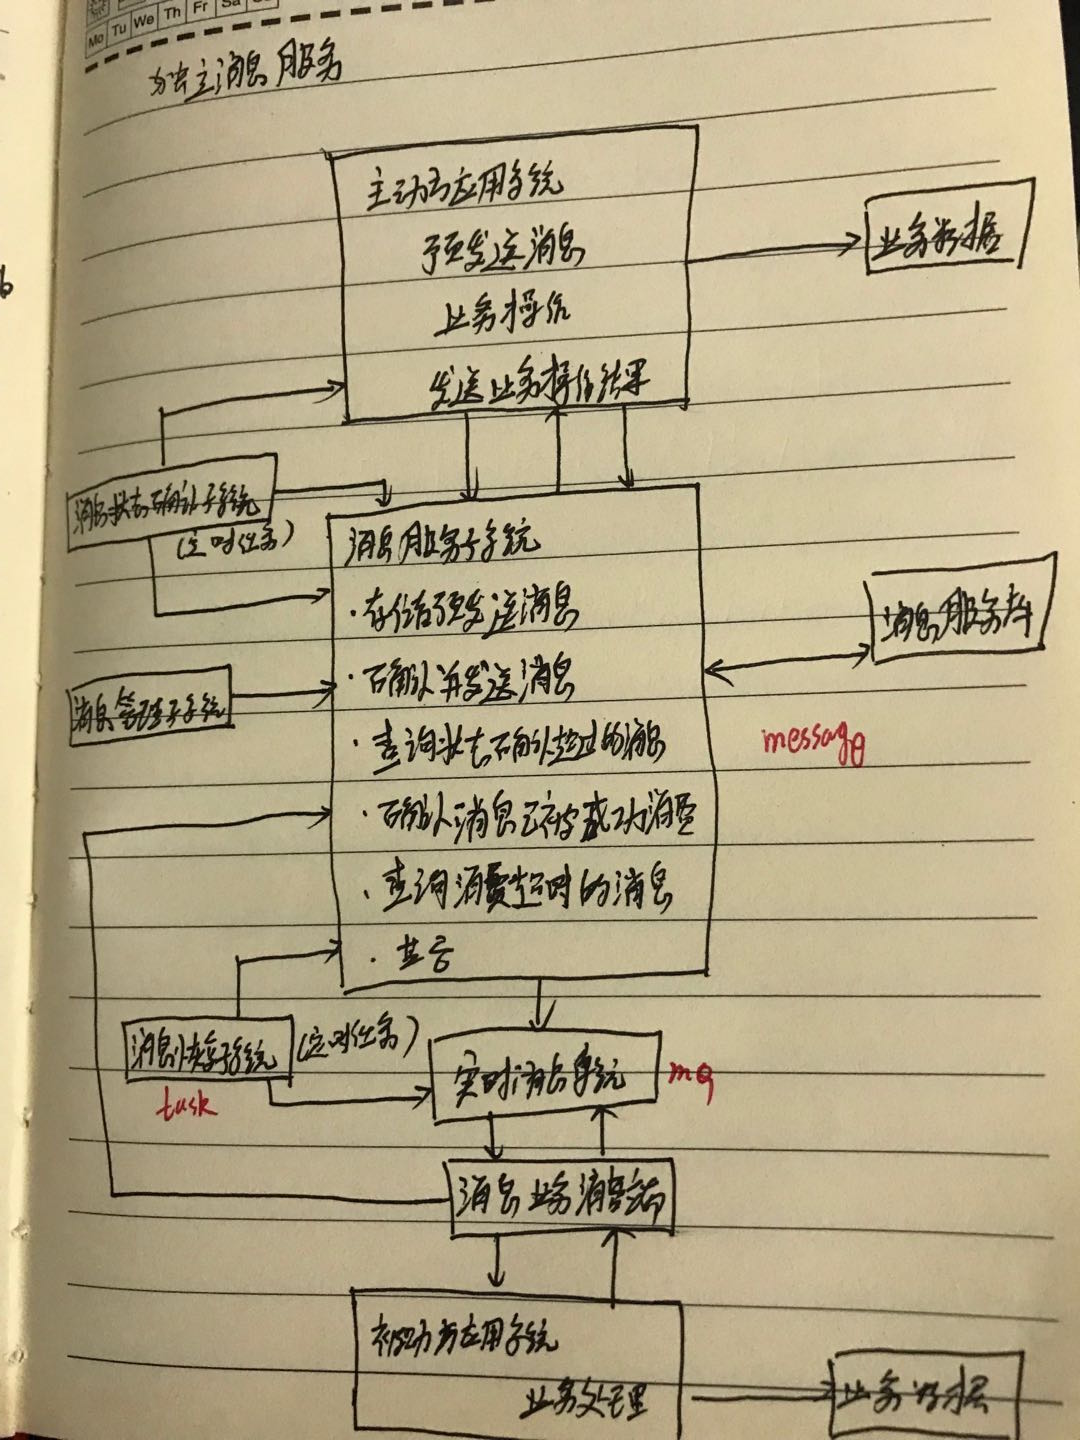 Mo Tu We Th Fr Sa Su
独立消息服务
主动方应用系统
预发送消息
业务操作
发送业务操作结果
业务数据
消息状态确认子系统
(定时任务)
消息服务子系统
·存储预发送消息
·确认并发送消息
·查询状态确认超过的消息
·确认消息已被成功消费
·查询消费超时的消息
·其它
消息服务库
message
消息管理子系统
消息恢复子系统
(定时任务)
task
实时消息系统
mq
消息业务消费端
被动方应用系统
业务处理
业务数据